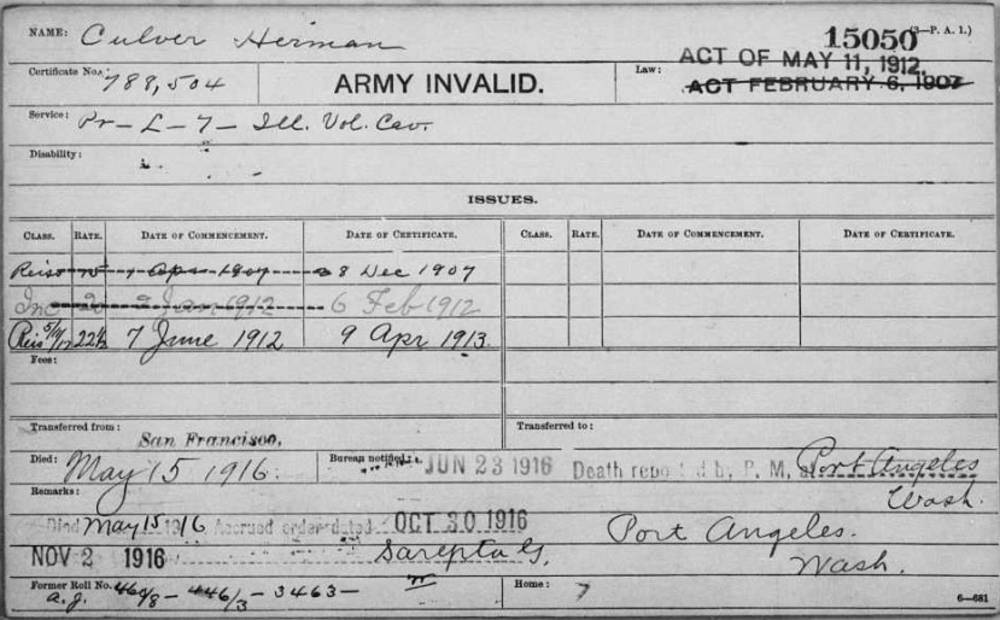 NAME: Culver Herman
15050 (3—P. A. 1.)
Certificate No. 788,504
ARMY INVALID.
Law: ACT OF MAY 11, 1912.
ACT FEBRUARY 6, 1907
Service: Pr – L – 7 – Ill. Vol. Cav.
Disability:
ISSUES.
CLASS. RATE. DATE OF COMMENCEMENT. DATE OF CERTIFICATE. CLASS. RATE. DATE OF COMMENCEMENT. DATE OF CERTIFICATE.
Reiss Apr 1907 8 Dec 1907
Inc 20 2 Jan 1912 6 Feb 1912
Reis 5/11/12 22½ 7 June 1912 9 Apr 1913.
Fees:
Transferred from: San Francisco,
Transferred to:
Died: May 15 1916.
Bureau notified: JUN 23 1916 Death reported by P. M., at Port Angeles
Wash.
Remarks:
Died May 15 1916 Accrued order dated OCT 30 1916 Port Angeles.
NOV 2 1916 Sarepta G, Wash.
W
Former Roll No. 446/3 – 3463 –
a.g.
Home: 7
6—681